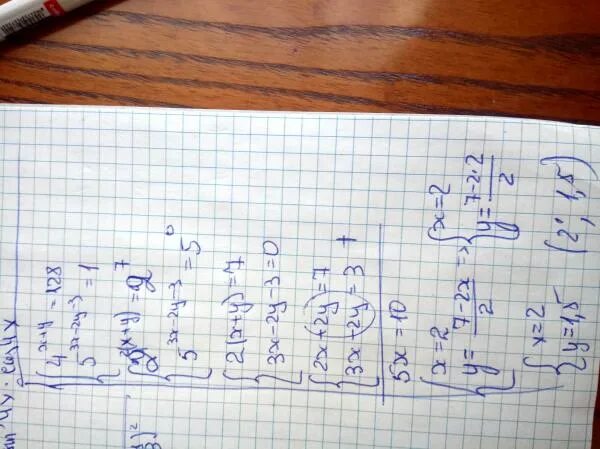 4x · cos4x
{ 4^{x+y} = 128
{ 5^{3x-2y-3} = 1
{ 2^{2(x+y)} = 2^7
{ 5^{3x-2y-3} = 5^0
{ 2(x+y) = 7
{ 3x-2y-3=0
{ 2x+2y=7
{ 3x+2y=3 +
5x=10
{ x=2
{ y= \frac{7-2x}{2} =>
{ x=2
{ y= \frac{7-2·2}{2}
{ x=2
{ y=1,5
(2; 1,5)